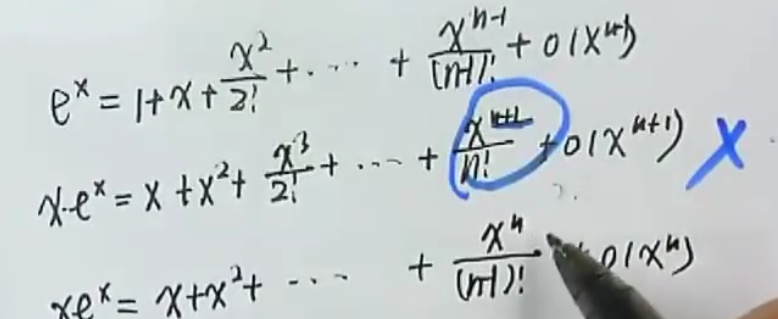 e^x = 1+x+\frac{x^2}{2!}+\cdots+\frac{x^{n-1}}{(n-1)!}+o(x^{n-1})
x·e^x = x+x^2+\frac{x^3}{2!}+\cdots+\frac{x^{n+1}}{n!}+o(x^{n+1}) X
xe^x = x+x^2+\cdots+\frac{x^n}{(n-1)!}+o(x^n)